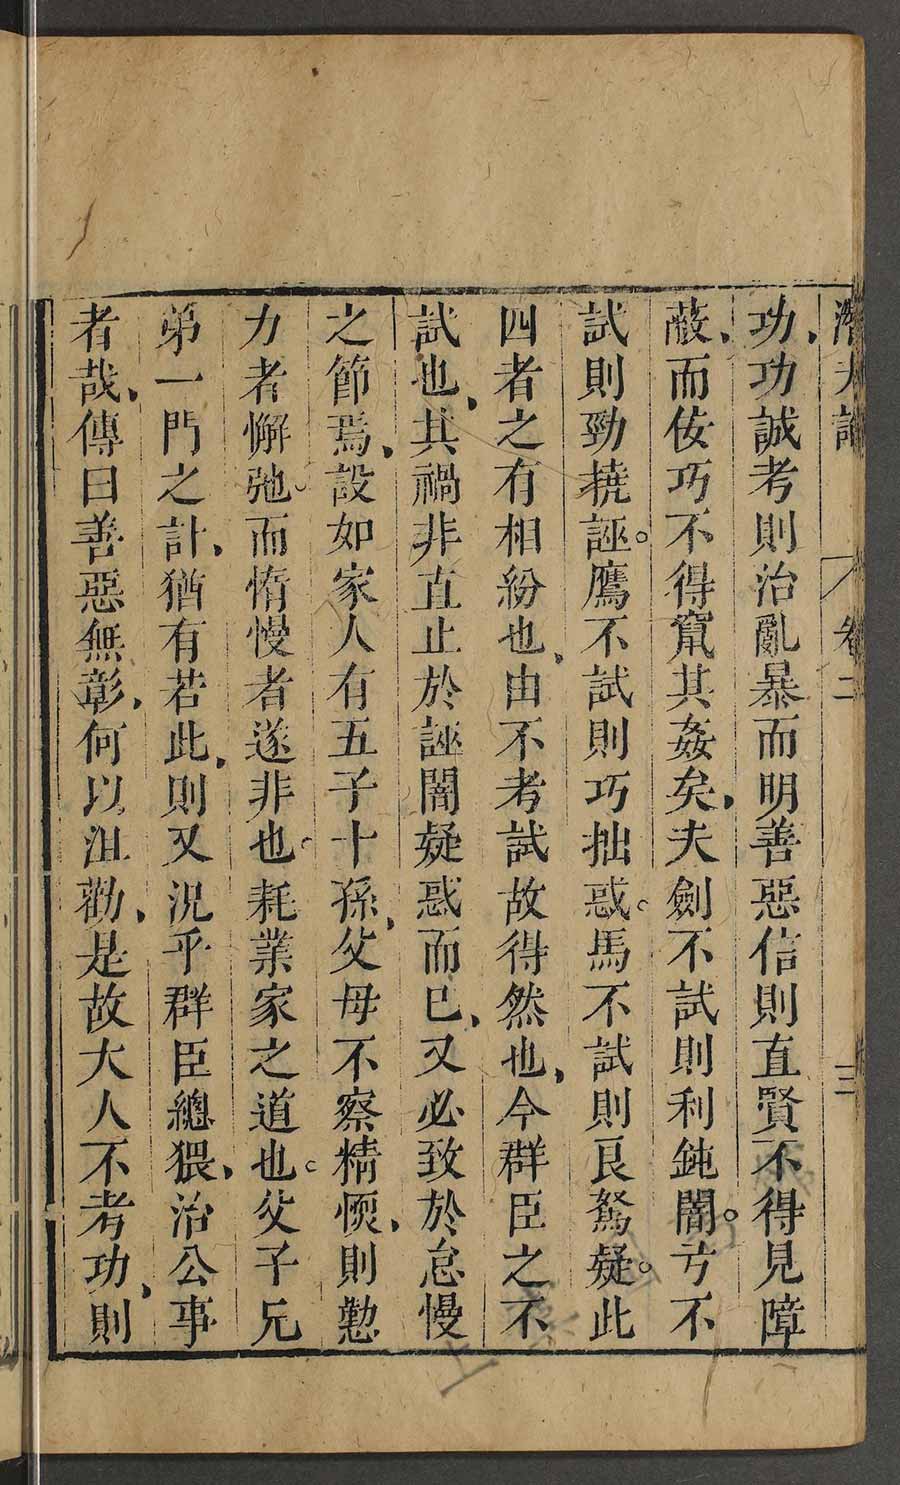 潛夫論 卷二 三
功功誠考則治亂暴而明善惡信則直賢不得見障
蔽而佞巧不得竄其姦矣夫劍不試則利鈍闇弓不
試則勁撓誣鷹不試則巧拙惑馬不試則良駑疑此
四者之有相紛也由不考試故得然也今群臣之不
試也其禍非直止於誣闇疑惑而已又必致於怠慢
之節焉設如家人有五子十孫父母不察精愞則懃
力者懈弛而惰慢者遂非也耗業家之道也父子兄
弟一門之計猶有若此則又況乎群臣總猥治公事
者哉傳曰善惡無彰何以沮勸是故大人不考功則